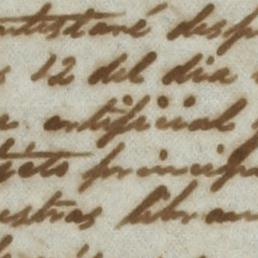 ntestaré desp
12 del dia
artificial
princip
estras libran